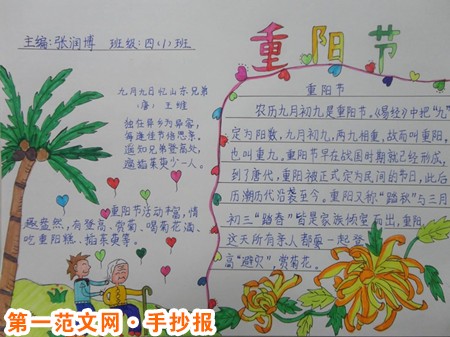 主编:张润博 班级:四(1)班
重阳节
九月九日忆山东兄弟
(唐) 王维
独在异乡为异客,
每逢佳节倍思亲。
遥知兄弟登高处,
遍插茱萸少一人。
重阳节活动丰富,情
趣盎然,有登高、赏菊、喝菊花酒、
吃重阳糕、插茱萸等。
重阳节
农历九月初九是重阳节。《易经》中把“九”
定为阳数,九月初九,两九相重,故而叫重阳,
也叫重九。重阳节早在战国时期就已经形成,
到了唐代,重阳被正式定为民间的节日,此后
历朝历代沿袭至今。重阳又称“踏秋”与三月
初三“踏春”皆是家族倾室而出,重阳
这天所有亲人都要一起登
高“避灾”,赏菊花。
第一范文网·手抄报